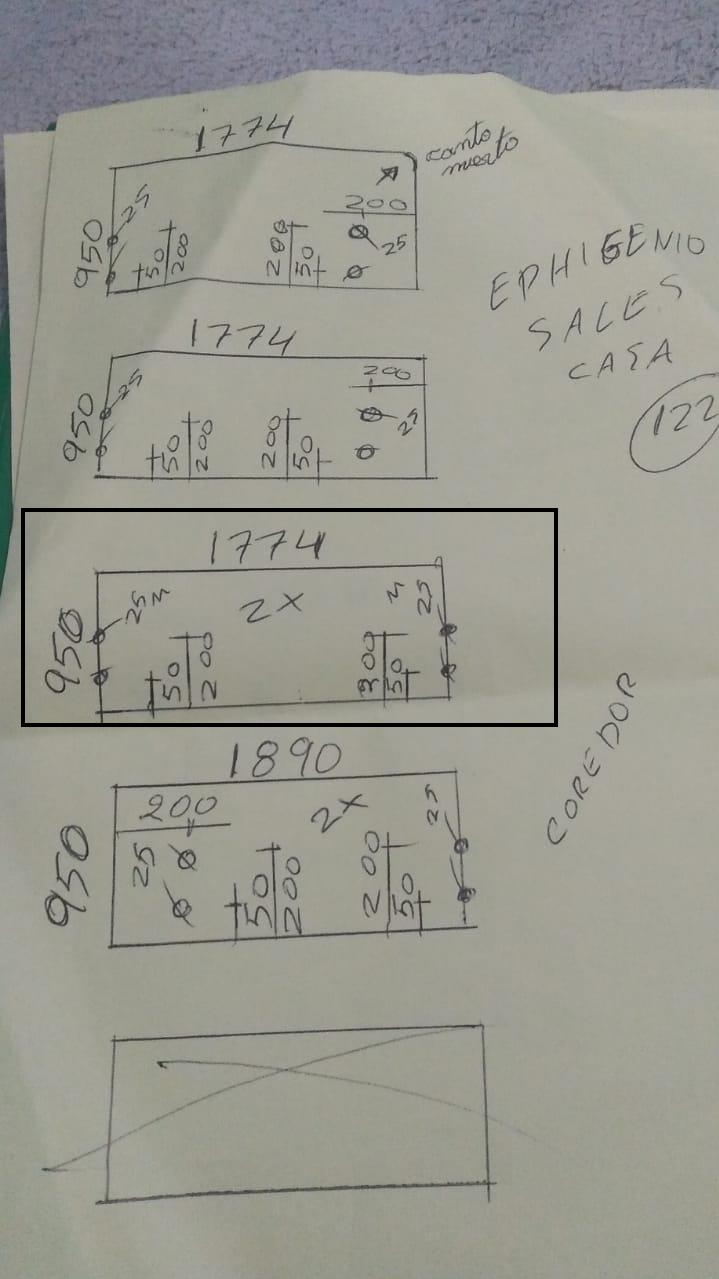 1774
canto
muerto
950
25
50
200
200
50
200
25
EPHIGENIO
SALES
CASA
122
1774
950
25
50
200
200
50
200
25
1774
950
25
2X
25
50
200
300
50
COREDOR
1890
950
200
25
2X
25
50
200
200
50